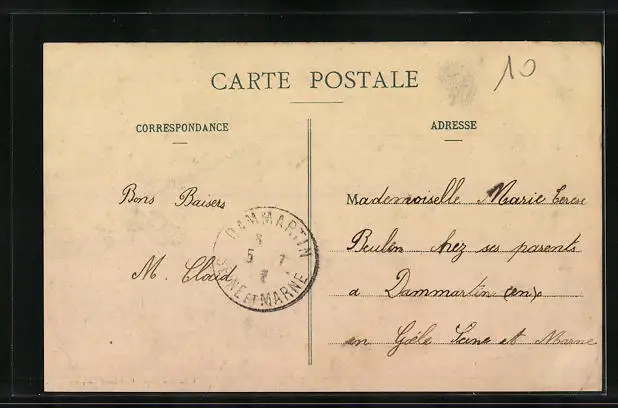 CARTE POSTALE
10
CORRESPONDANCE
Bons Baisers
M. Cloud
DAMMARTIN
8
5 7
SEINE ET MARNE
ADRESSE
Mademoiselle Marie Terese
Beulen chez ses parents
a Dammartin (en)
en Goële Seine et Marne